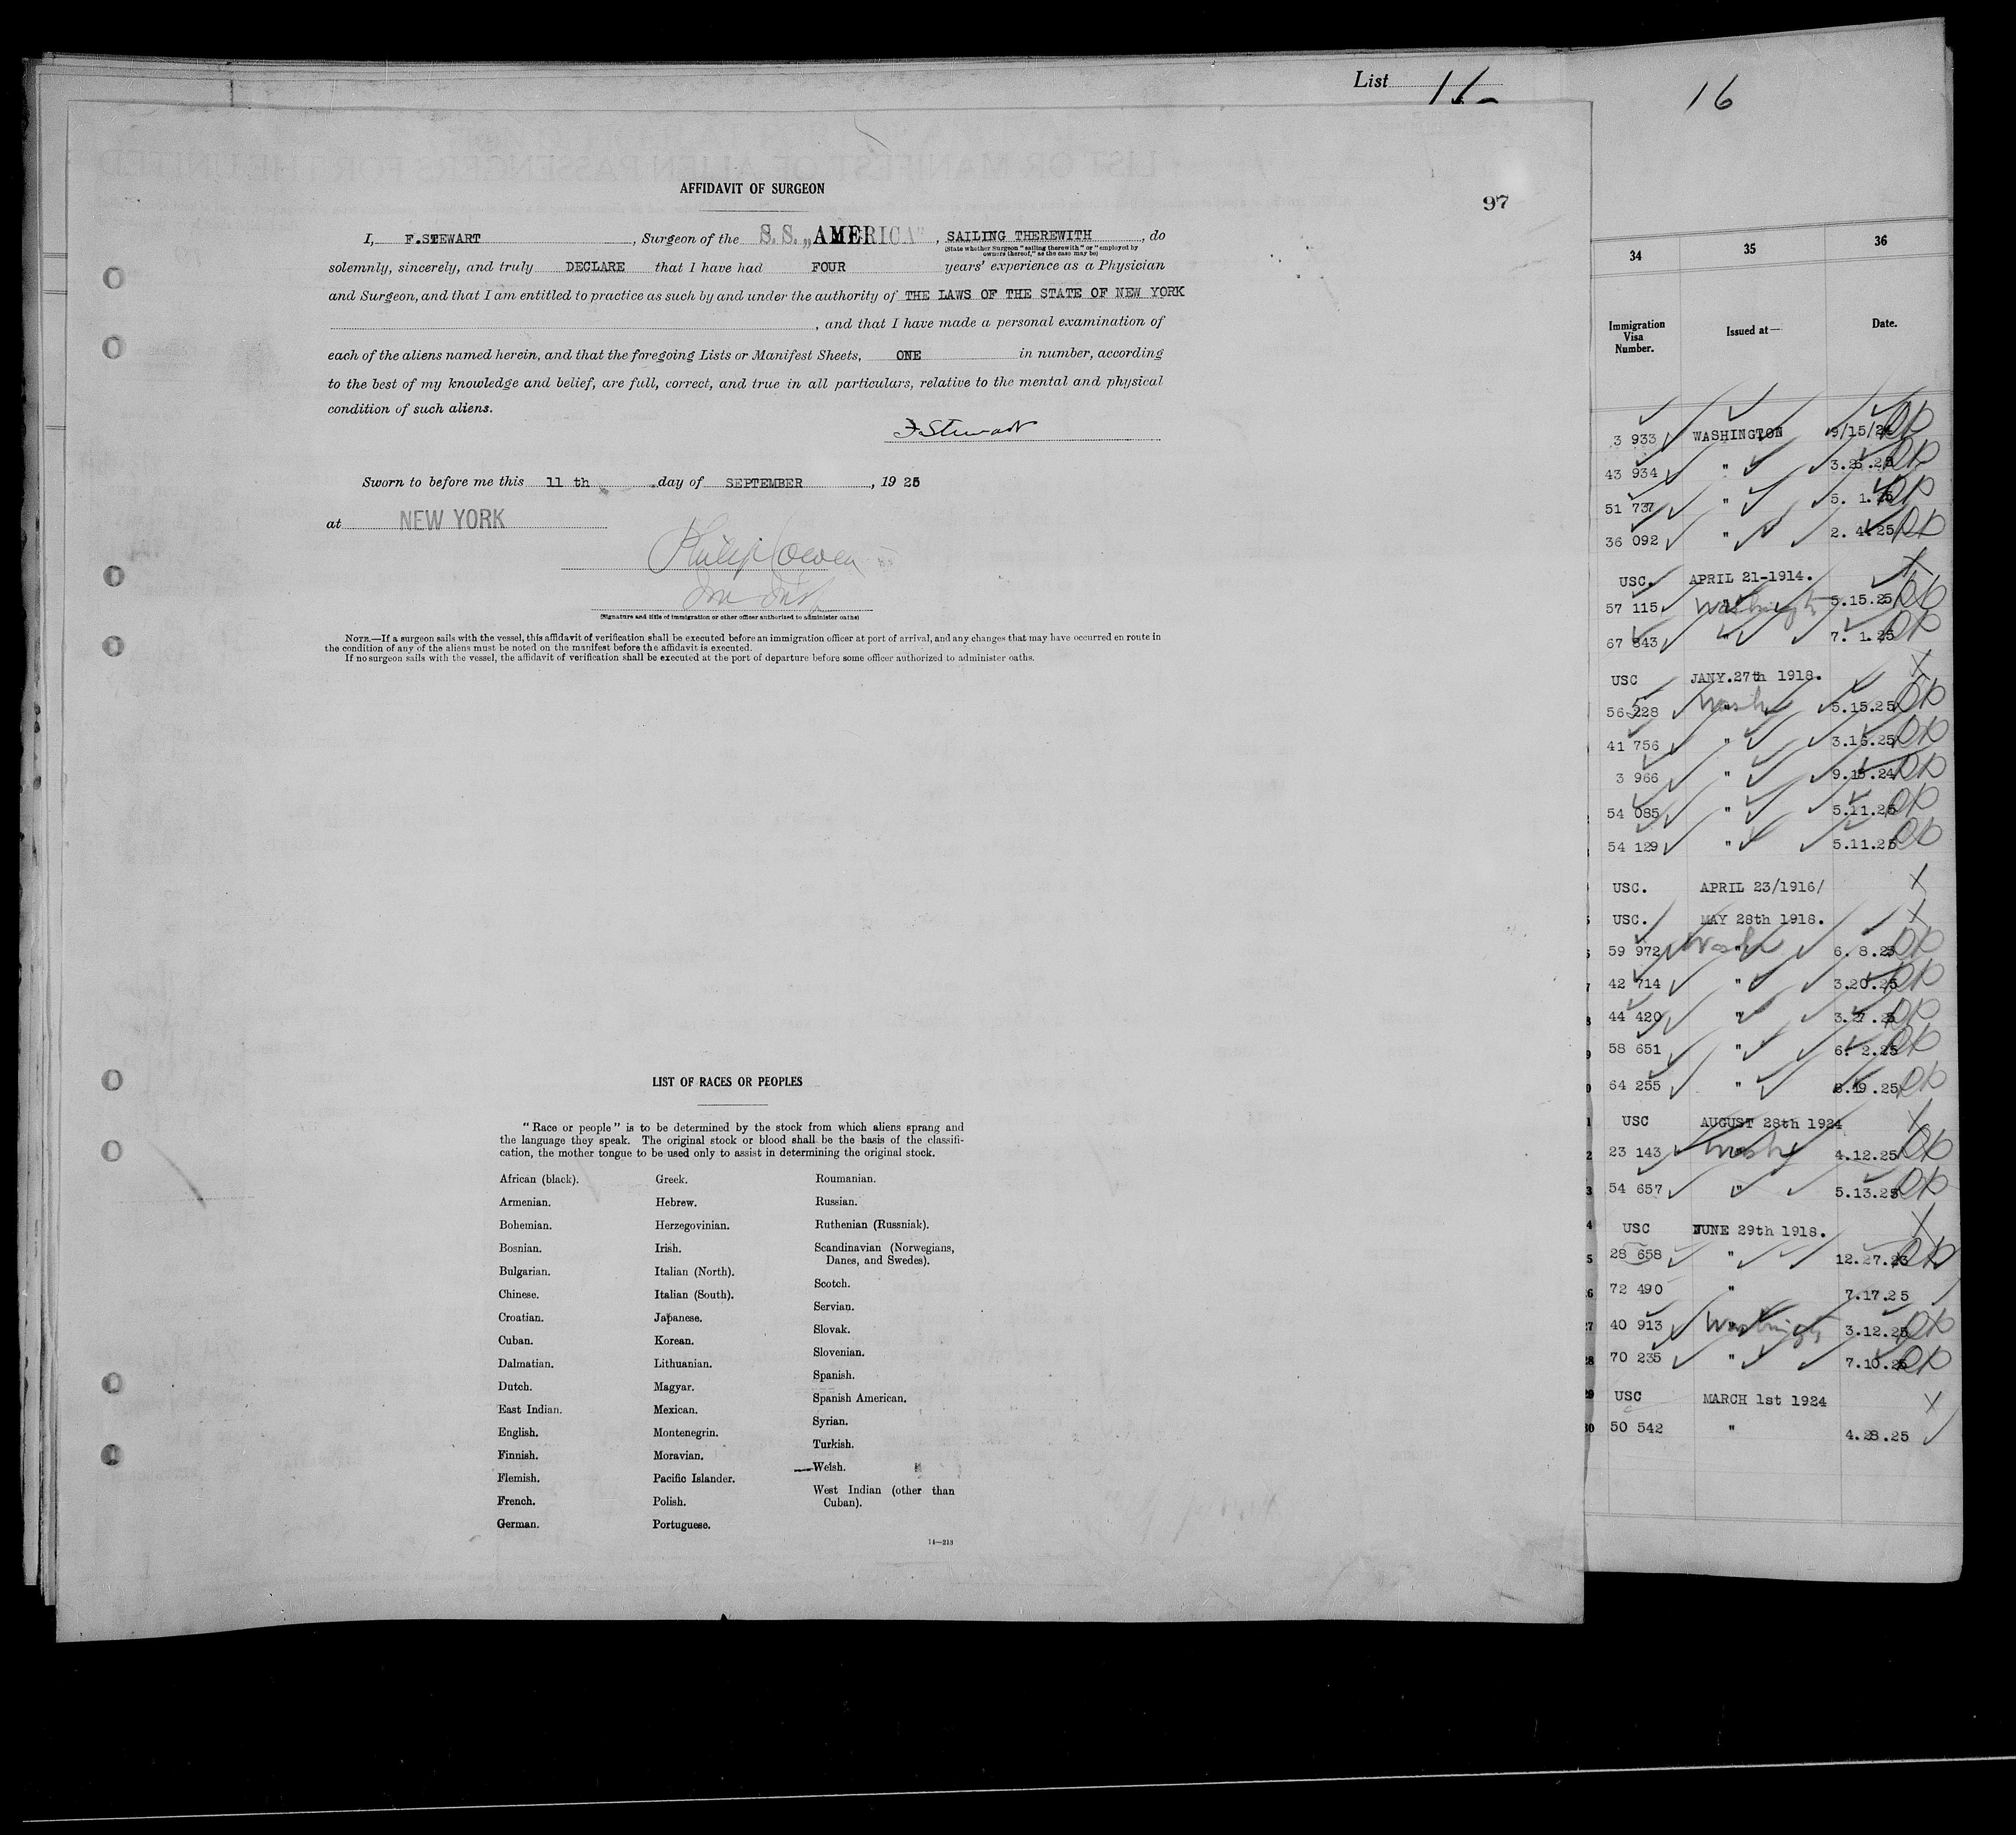 List 16
16
97
AFFIDAVIT OF SURGEON
I, F.STEWART, Surgeon of the S.S. „AMERICA", SAILING THEREWITH, do
(State whether Surgeon "sailing therewith" or "employed by
owners thereof," as the case may be)
solemnly, sincerely, and truly DECLARE that I have had FOUR years' experience as a Physician
and Surgeon, and that I am entitled to practice as such by and under the authority of THE LAWS OF THE STATE OF NEW YORK
, and that I have made a personal examination of
each of the aliens named herein, and that the foregoing Lists or Manifest Sheets, ONE in number, according
to the best of my knowledge and belief, are full, correct, and true in all particulars, relative to the mental and physical
condition of such aliens.
F Stewart
Sworn to before me this 11 th day of SEPTEMBER, 19 25
at NEW YORK
Philip Cowen
(Signature and title of immigration or other officer authorized to administer oaths)
NOTE.—If a surgeon sails with the vessel, this affidavit of verification shall be executed before an immigration officer at port of arrival, and any changes that may have occurred en route in
the condition of any of the aliens must be noted on the manifest before the affidavit is executed.
If no surgeon sails with the vessel, the affidavit of verification shall be executed at the port of departure before some officer authorized to administer oaths.
LIST OF RACES OR PEOPLES
"Race or people" is to be determined by the stock from which aliens sprang and
the language they speak. The original stock or blood shall be the basis of the classifi-
cation, the mother tongue to be used only to assist in determining the original stock.
African (black).
Armenian.
Bohemian.
Bosnian.
Bulgarian.
Chinese.
Croatian.
Cuban.
Dalmatian.
Dutch.
East Indian.
English.
Finnish.
Flemish.
French.
German.
Greek.
Hebrew.
Herzegovinian.
Irish.
Italian (North).
Italian (South).
Japanese.
Korean.
Lithuanian.
Magyar.
Mexican.
Montenegrin.
Moravian.
Pacific Islander.
Polish.
Portuguese.
Roumanian.
Russian.
Ruthenian (Russniak).
Scandinavian (Norwegians,
Danes, and Swedes).
Scotch.
Servian.
Slovak.
Slovenian.
Spanish.
Spanish American.
Syrian.
Turkish.
Welsh.
West Indian (other than
Cuban).
14—213
34 35 36
Immigration
Visa
Number.
Issued at—
Date.
3 933 WASHINGTON 9/15/24 OK
43 934 " 3.25.25 OK
51 737 " 5. 1.25 OK
36 092 " 2. 4.25 OK
USC. APRIL 21-1914.
57 115 Washington 5.15.25 OK
67 843 " 7. 1.25 OK
USC JANY.27th 1918.
56 228 Wash 5.15.25 OK
41 756 " 3.16.25 OK
3 966 " 9.15.24 OK
54 085 " 5.11.25 OK
54 129 " 5.11.25 OK
USC. APRIL 23/1916/
USC. MAY 28th 1918.
59 972 Wash 6. 8.25 OK
42 714 " 3.20.25 OK
44 420 " 3.27.25 OK
58 651 " 6. 2.25 OK
64 255 " 6.19.25 OK
USC AUGUST 28th 1924
23 143 Wash 4.12.25 OK
54 657 " 5.13.25 OK
USC JUNE 29th 1918.
28 658 " 12.27.23 OK
72 490 " 7.17.25
40 913 Washington 3.12.25 OK
70 235 " 7.10.25 OK
USC MARCH 1st 1924
50 542 " 4.28.25